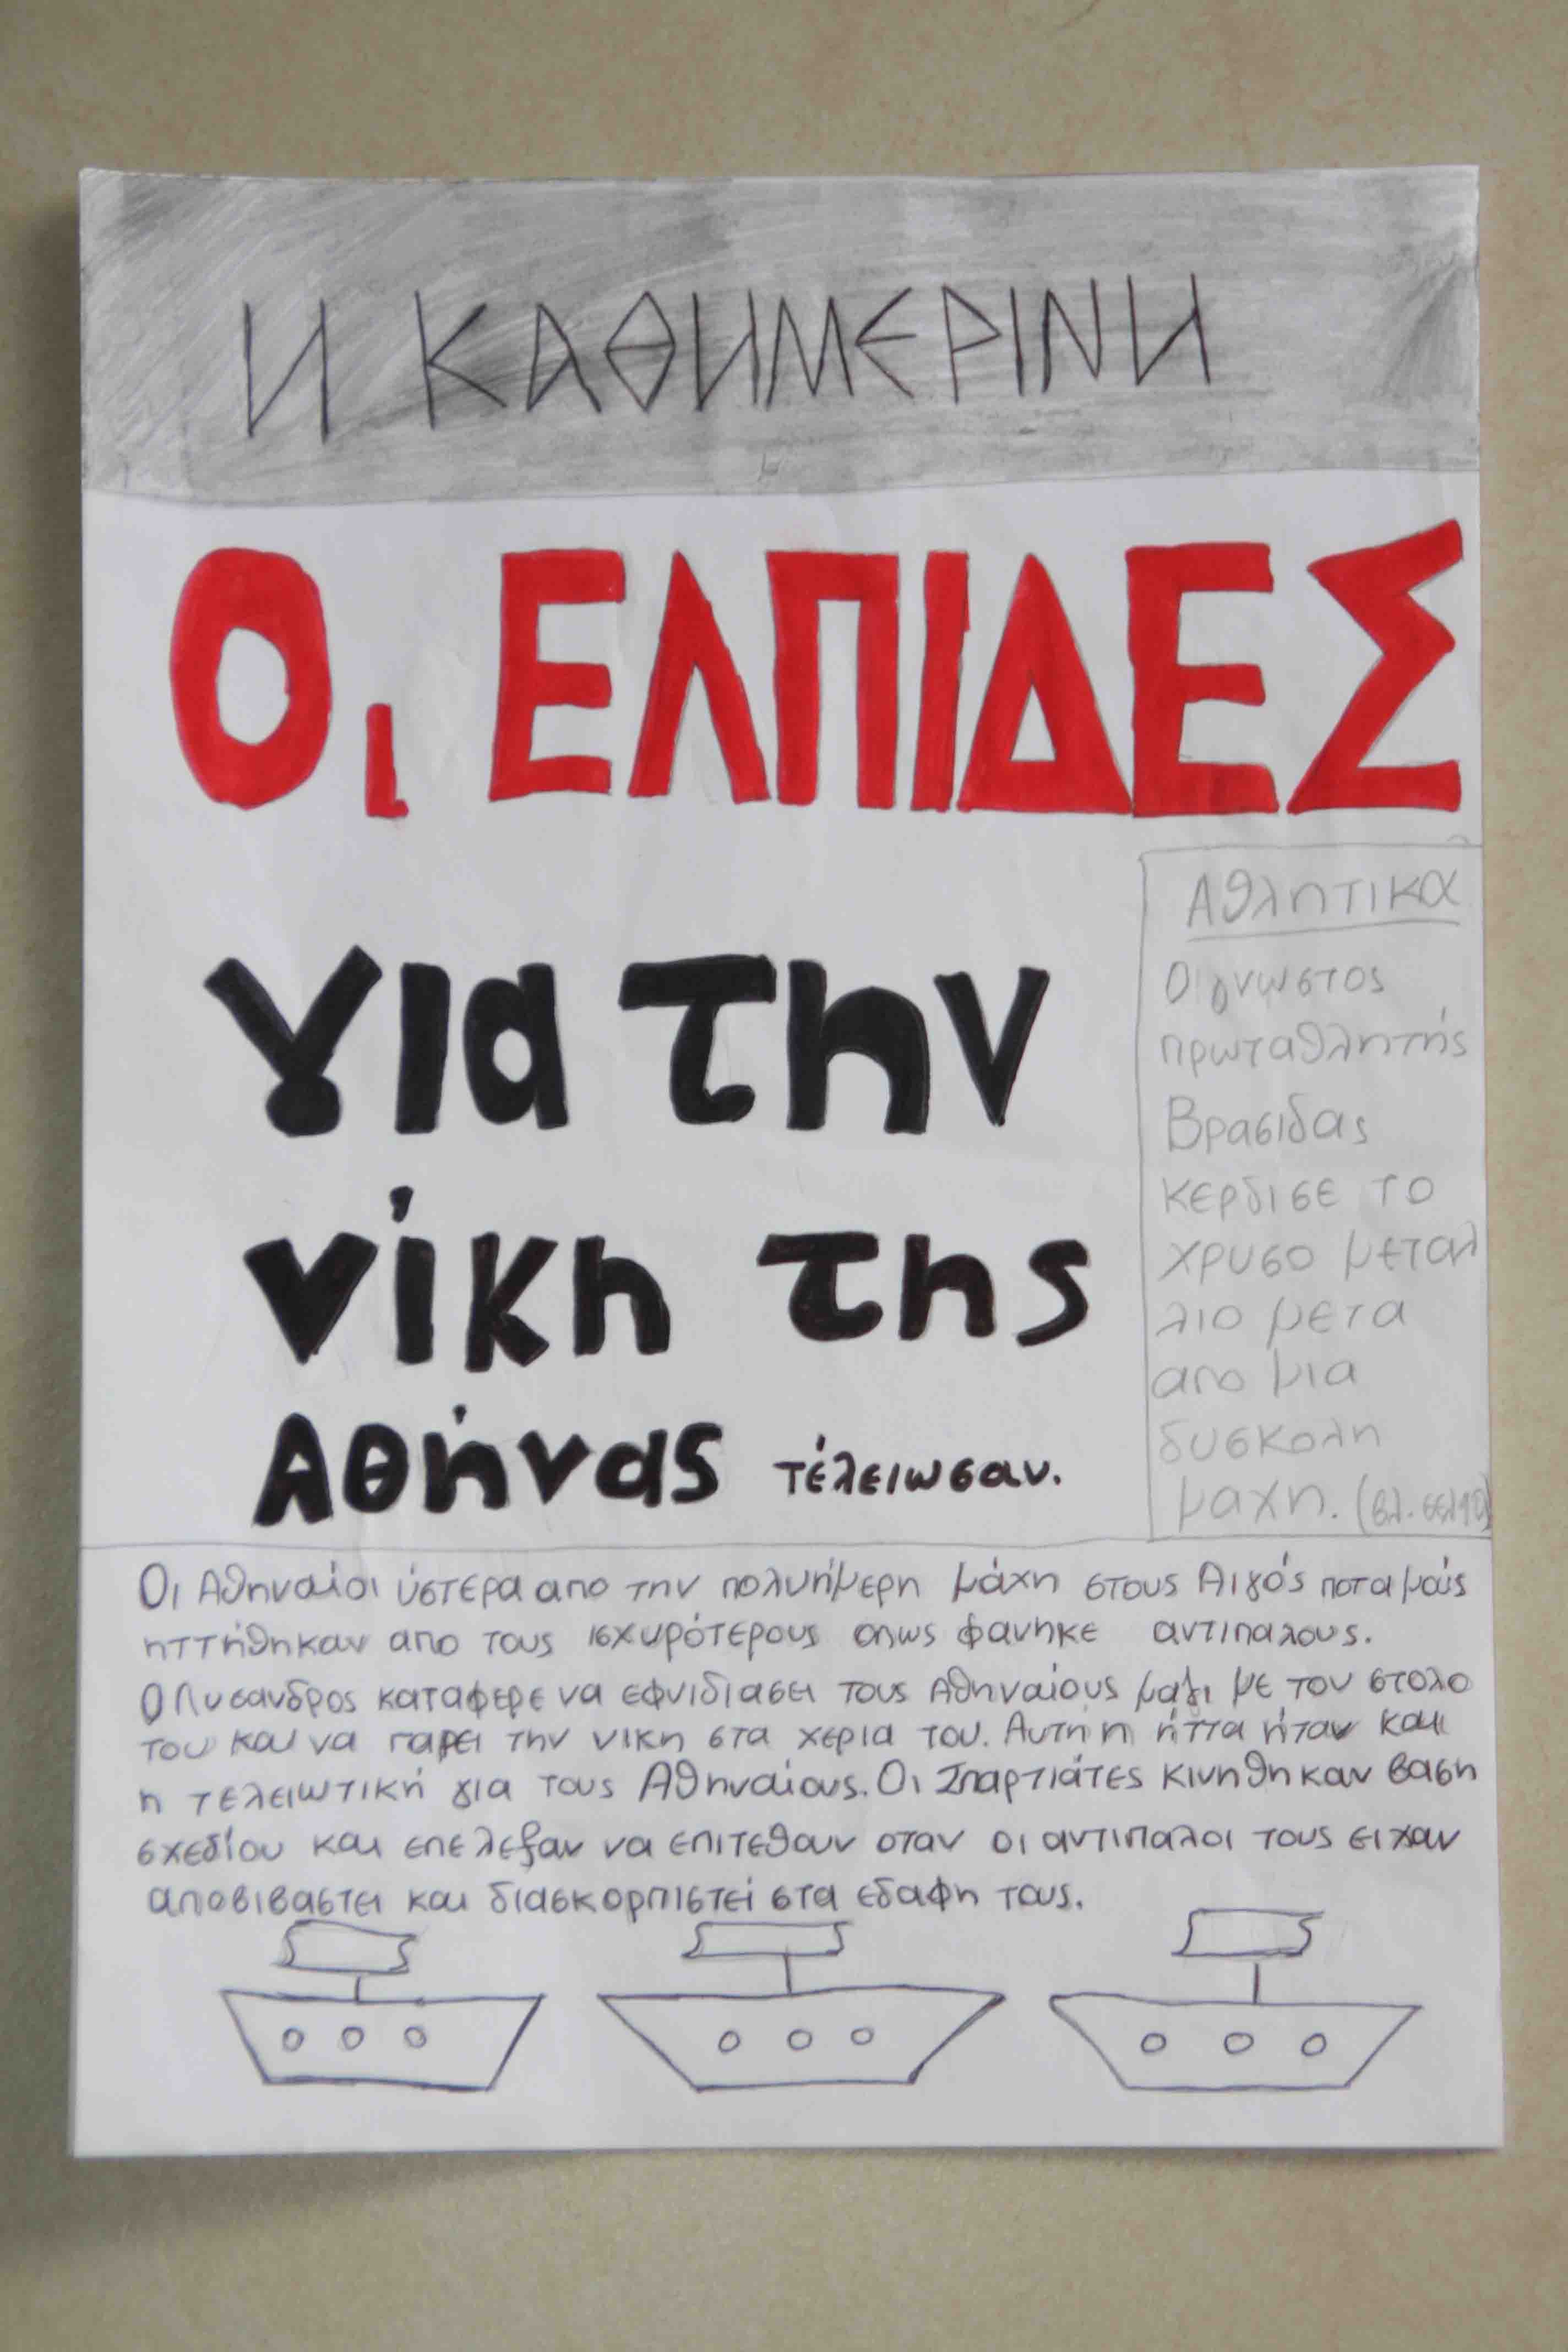 Η ΚΑΘΗΜΕΡΙΝΗ
Οι ΕΛΠΙΔΕΣ
για την
νίκη της
Αθήνας τέλειωσαν.
Αθλητικα
Ο γνωστος
πρωταθλητής
Βρασιδας
κερδισε το
χρυσο μεταλ
λιο μετα
απο μια
δυσκολη
μαχη. (βλ. σελ 10)
Οι Αθηναίοι ύστερα απο την πολυήμερη μάχη στους Αιγός ποταμούς
ηττήθηκαν απο τους ισχυρότερους οπως φανηκε αντιπαλους.
Ο Λυσανδρος καταφερε να εφνιδιασει τους Αθηναίους μαζι με τον στολο
του και να παρει την νικη στα χερια του. Αυτή η ήττα ήταν και
η τελειωτική για τους Αθηναίους. Οι Σπαρτιάτες κινηθηκαν βαση
σχεδίου και επελεξαν να επιτεθουν οταν οι αντιπαλοι τους ειχαν
αποβιβαστει και διασκορπιστεί στα εδαφη τους.